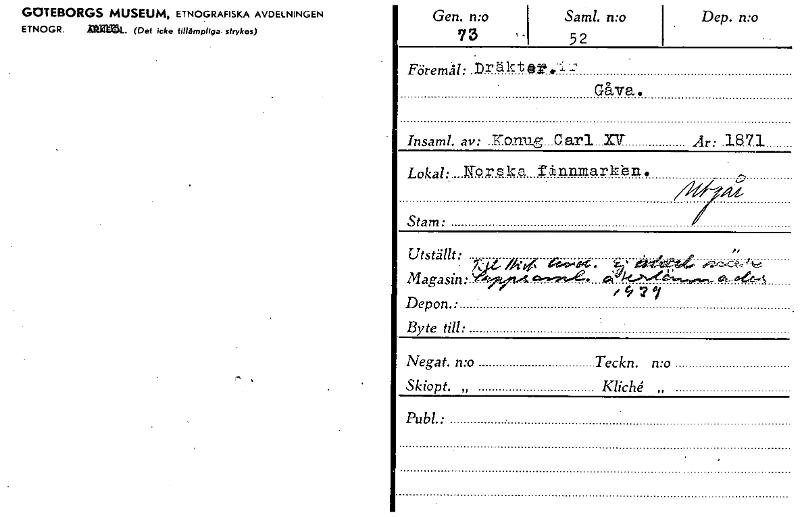 GÖTEBORGS MUSEUM, ETNOGRAFISKA AVDELNINGEN
ETNOGR. ARKEOL. (Det icke tillämpliga strykes)
Gen. n:o Saml. n:o Dep. n:o
73 52
Föremål: Dräkter.
Gåva.
Insaml. av: Konug Carl XV År: 1871
Lokal: Norska finnmarken.
Utgår
Stam:
Utställt:
Till Hist. avd. Ej när
Magasin: Lappsaml. återlämnades
1939
Depon.:
Byte till:
Negat. n:o Teckn. n:o
Skiopt. „ Kliché „
Publ.: